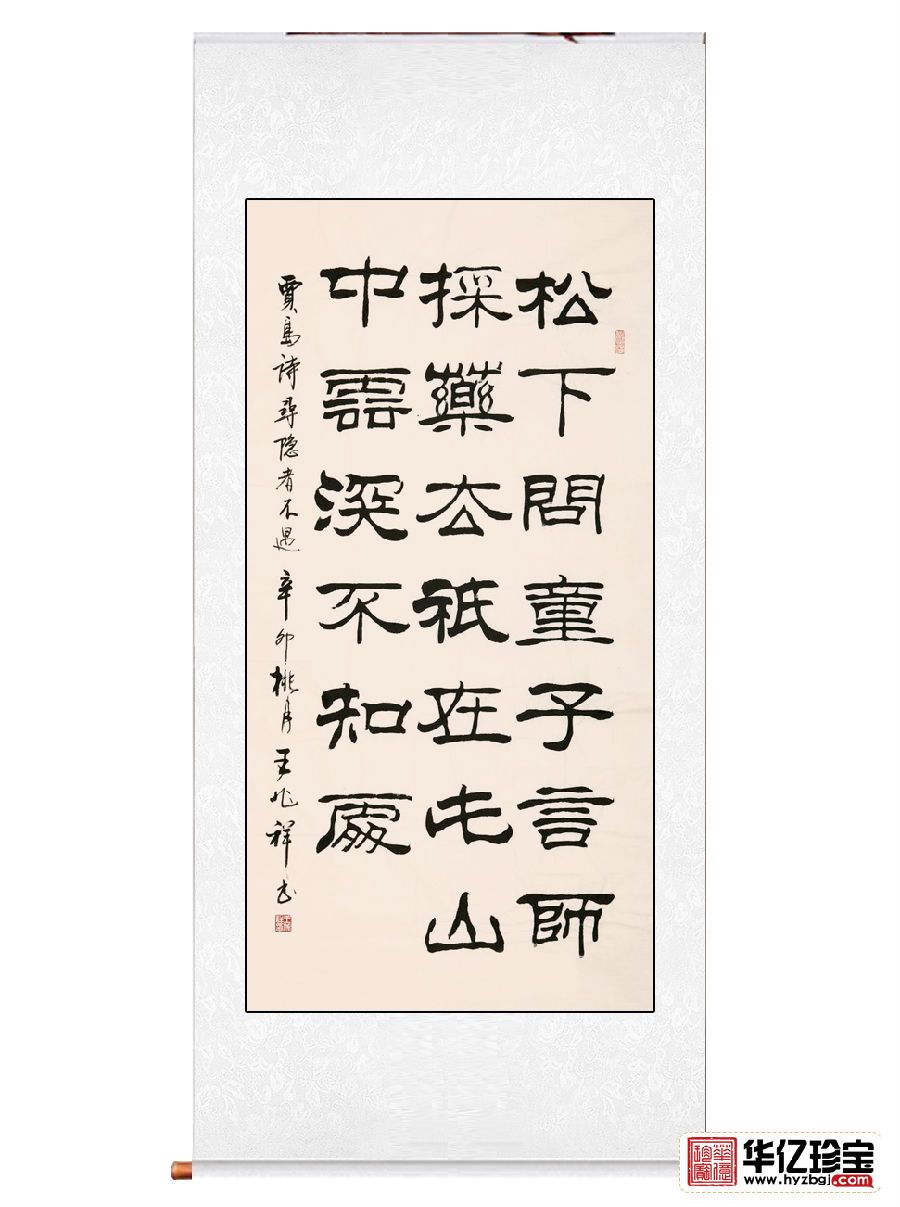 松下問童子言師
採藥去祇在此山
中雲深不知處
賈島诗尋隐者不遇 辛卯桃月 王兆祥书
华亿珍宝
www.hyzbgj.com